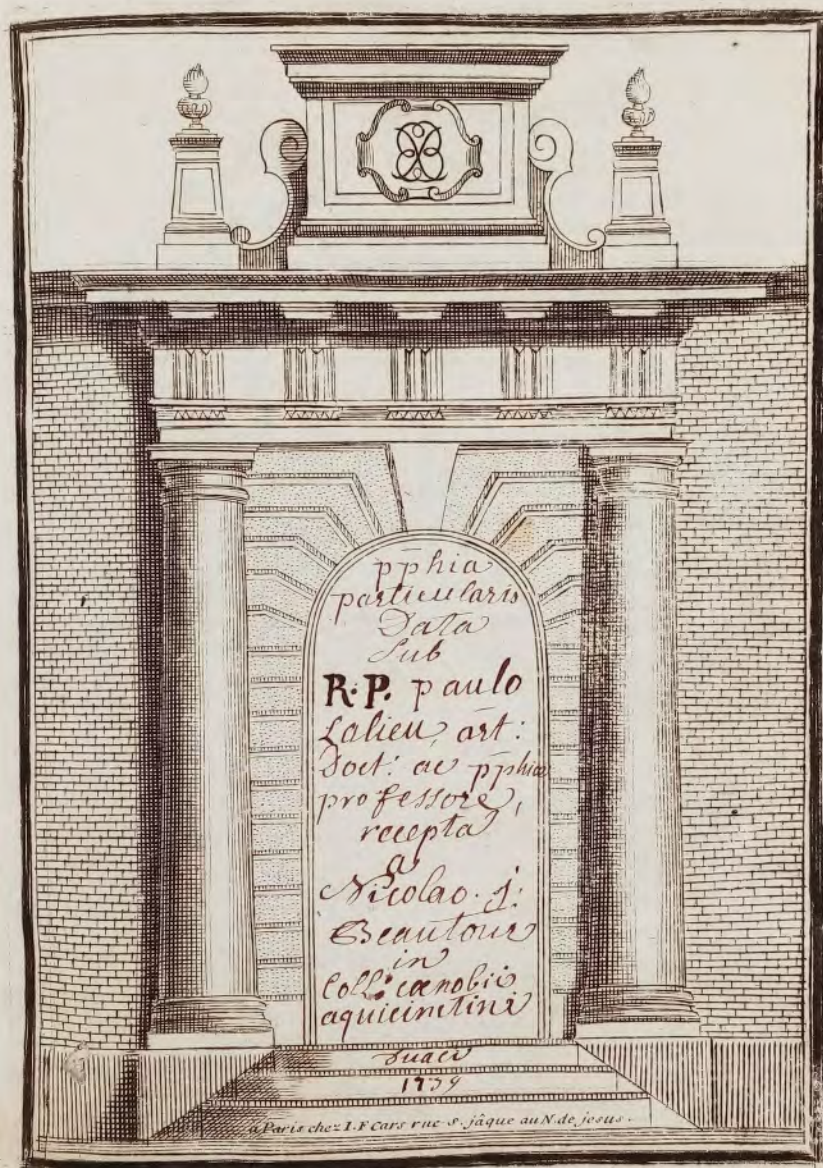 pp̄hia
particularis
Data
sub
R. P. paulo
Lalieu, art:
Doct: ac pp̄hiæ
professore,
recepta
a
Nicolao. j:
Beautour
in
Coll: cœnobii
aquicinctini
duaci
1739
a Paris chez I. F Cars rue S. jâque au N. de jesus.